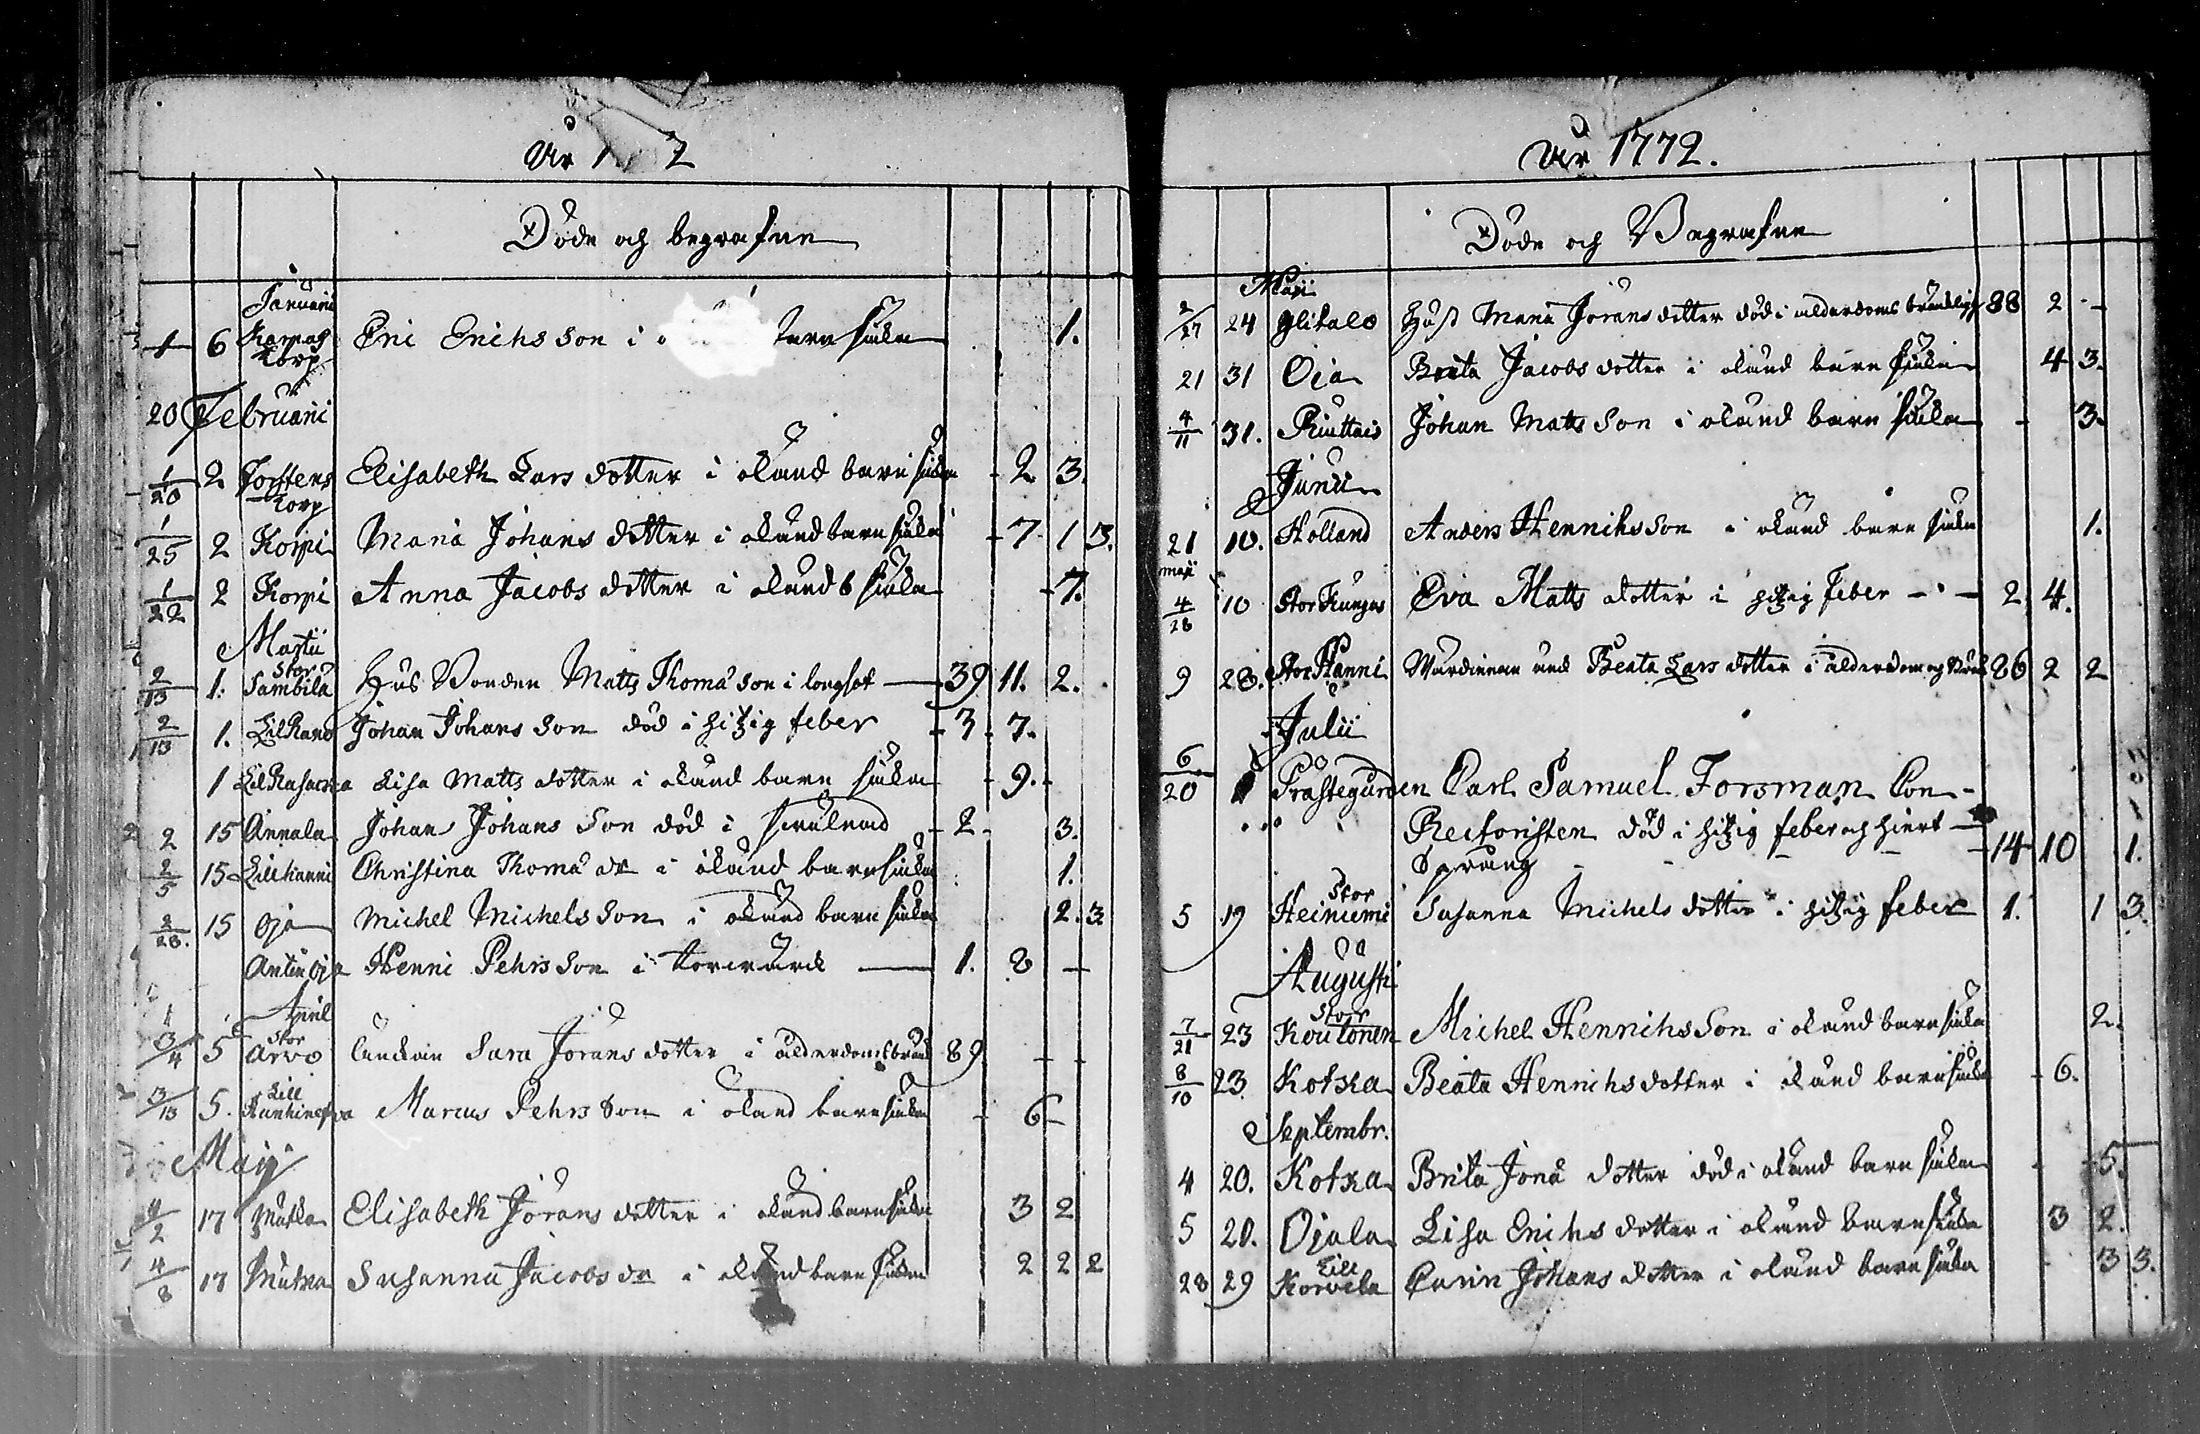 År 1 2
Döde och begrafne
Januarii
1 6 Karpag Korp Eric Erichs Son i barn siuka 1.
20 Februarii
1/20 2 Torstens Korp Elisabeth Lars dotter i okänd barn siuka - 2 3.
1/25 2 Korpi Maria Johans dotter i okänd barn siuka - 7 1 3.
1/22 2 Korpi Anna Jacobs dotter i okänd b siuka - 7.
Martii
2/13 1. Stor Sämbilä Hus Bonden Matts Thomæ son i långsot 39 11. 2.
2/13 1. Lil Rano Johan Johans Son död i hitzig feber - 3 - 7.
1 Lil Lisa Matts dotter i okänd barn siuka - 9. -
2 15 Annala Johan Johans Son död i - 2 - 3.
2/5 15 Lill Hanni Christina Thomæ dr i okänd barnsiuka 1.
2/28. 15 Oja Michel Michels Son i okänd barn siuka 2. 3
Antin Oja Henric Pehrs Son i 1. 8 -
April
3/4 5 Stor Arvo Enckan Sara Jörans dotter i ålderdoms bräck 89 - -
3/13 5. Lill Marcus Pehrs Son i okänd barnsiuka - 6 -
Maij
4/2 17 Mutka Elisabeth Jörans dotter i okänd barnsiuka 3 2
4/8 17 Mutka Susanna Jacobs dr i okänd barn siuka 2 2 2
År 1772.
Döde och Begrafne
Maji
2/27 24 Ylitalo Hust Maria Jörans dotter död i ålderdoms bräcklig 88 2 -
21 31 Oja Brita Jacobs dotter i okänd barn siuka 4 3.
4/11 31. Riuttais Johan Matts Son i okänd barn siuka - 3.
Junii
21 maji 10. Holland Anders Henrichs Son i okänd barn siuka 1.
4/28 10 Stor Kangas Eva Matts dotter i hitzig feber - - 2 4.
9 28. Stor Hanni Wärdinnan Beata Lars dotter i ålderdom och 86 2 2
Julii
6/20 Prästegården Carl Samuel Forsman Con-
Rectoristen död i hitzig feber och hiert
språng - 14 10 1.
5 19 Stor Heiniemi Susanna Michels dotter i hitzig feber 1. 1 3.
Augusti
7/21 23 Stor Koutonen Michel Henrichs Son i okänd barn siuka 2.
8/10 23 Kotka Beata Henrichs dotter i okänd barn siuka - 6.
Septembr.
4 20. Kotka Brita Jonæ dotter död i okänd barn siuka - 5.
5 20. Ojala Lisa Erichs dotter i okänd barn siuka 3 2.
28 29 Lill Korvela Carin Johans dotter i okänd barn siuka - 3 3.